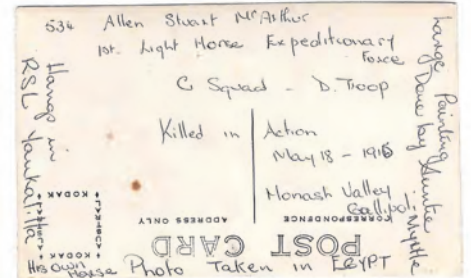 534 Allen Stuart McArthur
1st. Light Horse Expeditionary
Force
C Squad - D. Troop
Killed in Action
May 18 - 1915
Monash Valley
Gallipoli
His Own
Horse Photo Taken in EGYPT
Hangs in
RSL Yankalilla
Large Painting
Done by Auntie
Myrtle
POST CARD
CORRESPONDENCE
ADDRESS ONLY
AUSTRAL
KODAK
KODAK